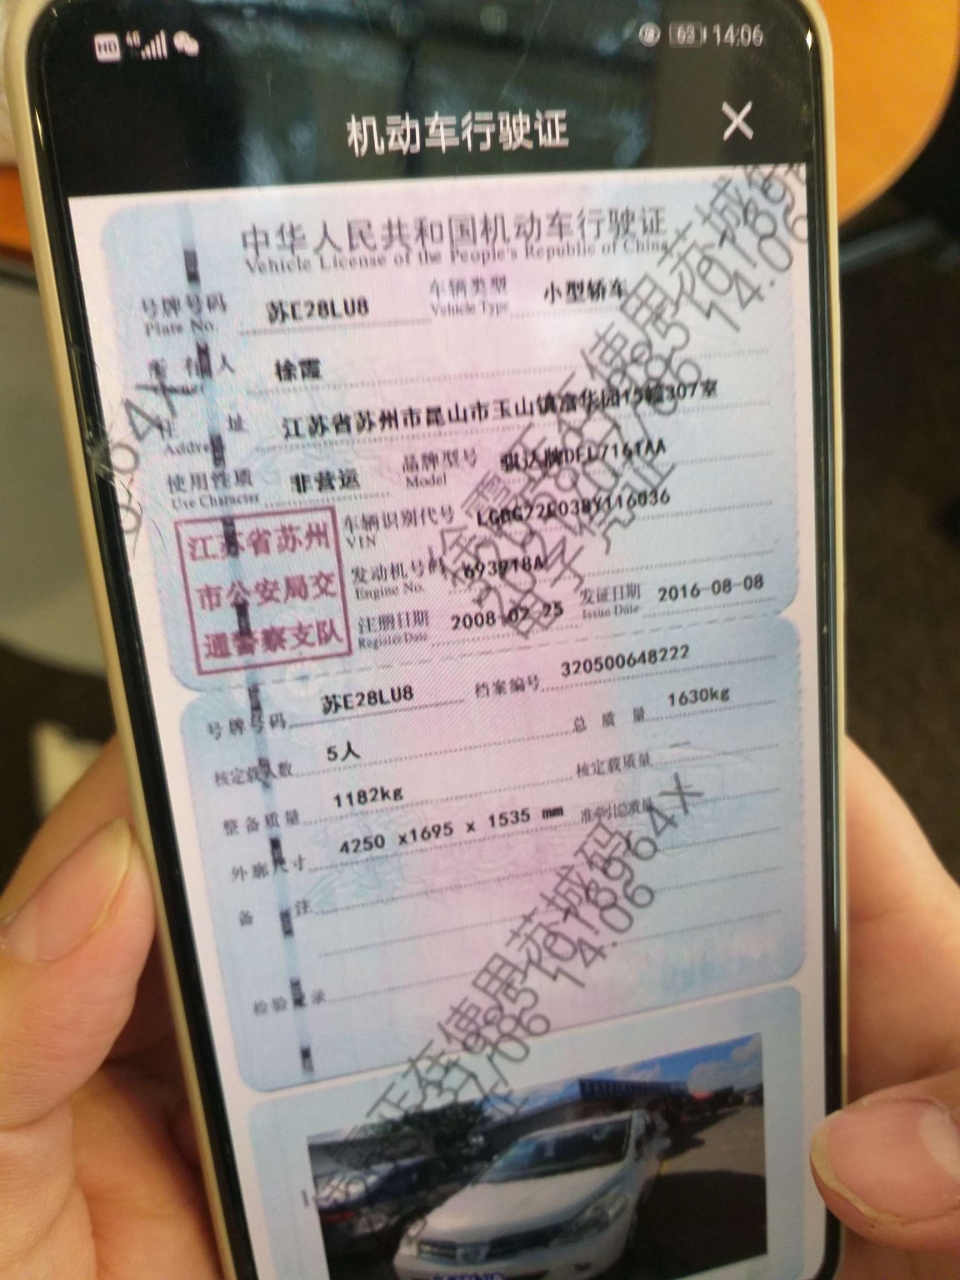 HD 4G 63 14:06
机动车行驶证
中华人民共和国机动车行驶证
Vehicle License of the People's Republic of China
号牌号码 苏E28LU8 车辆类型 小型轿车
Plate No. Vehicle Type
所有人 徐霞
住址 江苏省苏州市昆山市玉山镇富华园15幢307室
Address
使用性质 非营运 品牌型号 骐达牌
Use Character Model
江苏省苏州
市公安局交
通警察支队
车辆识别代号
VIN
发动机号码 693918A
Engine No.
注册日期 2008-02-25 发证日期 2016-08-08
Register Date Issue Date
号牌号码 苏E28LU8 档案编号 320500648222
核定载人数 5人 总质量 1630kg
整备质量 1182kg 核定载质量 —
外廓尺寸 4250 x1695 x 1535 mm 准牵引总质量 —
备注
检验记录
正在使用苏城码
14:06
电子亮证
正在使用苏城码
14:06